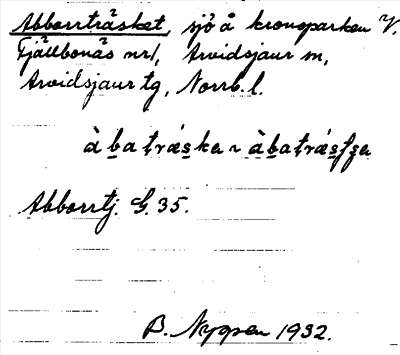 Abborrträsket, sjö å kronoparken V.
Fjällbonäs nr 1, Arvidsjaur sn,
Arvidsjaur tg, Norrb. l.
àbatráska ~ àbatrásʃʒa
Abborrtj. G. 35.
B. Nygren 1932.